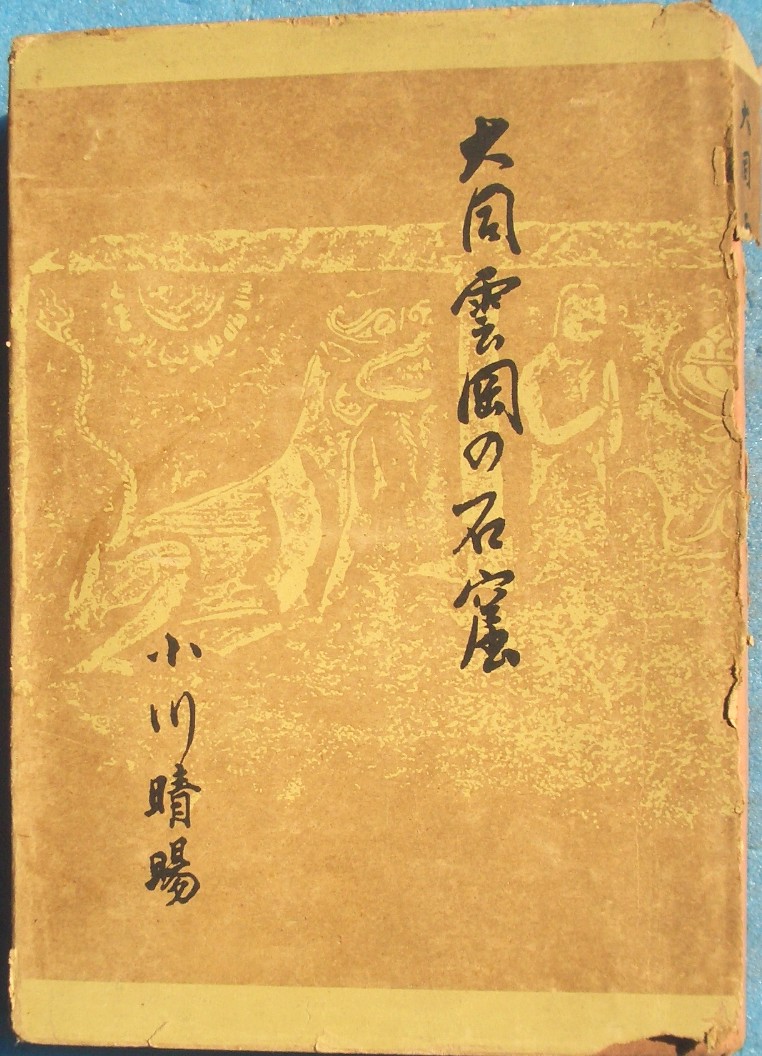 大同雲岡の石窟
小川晴暘
大同